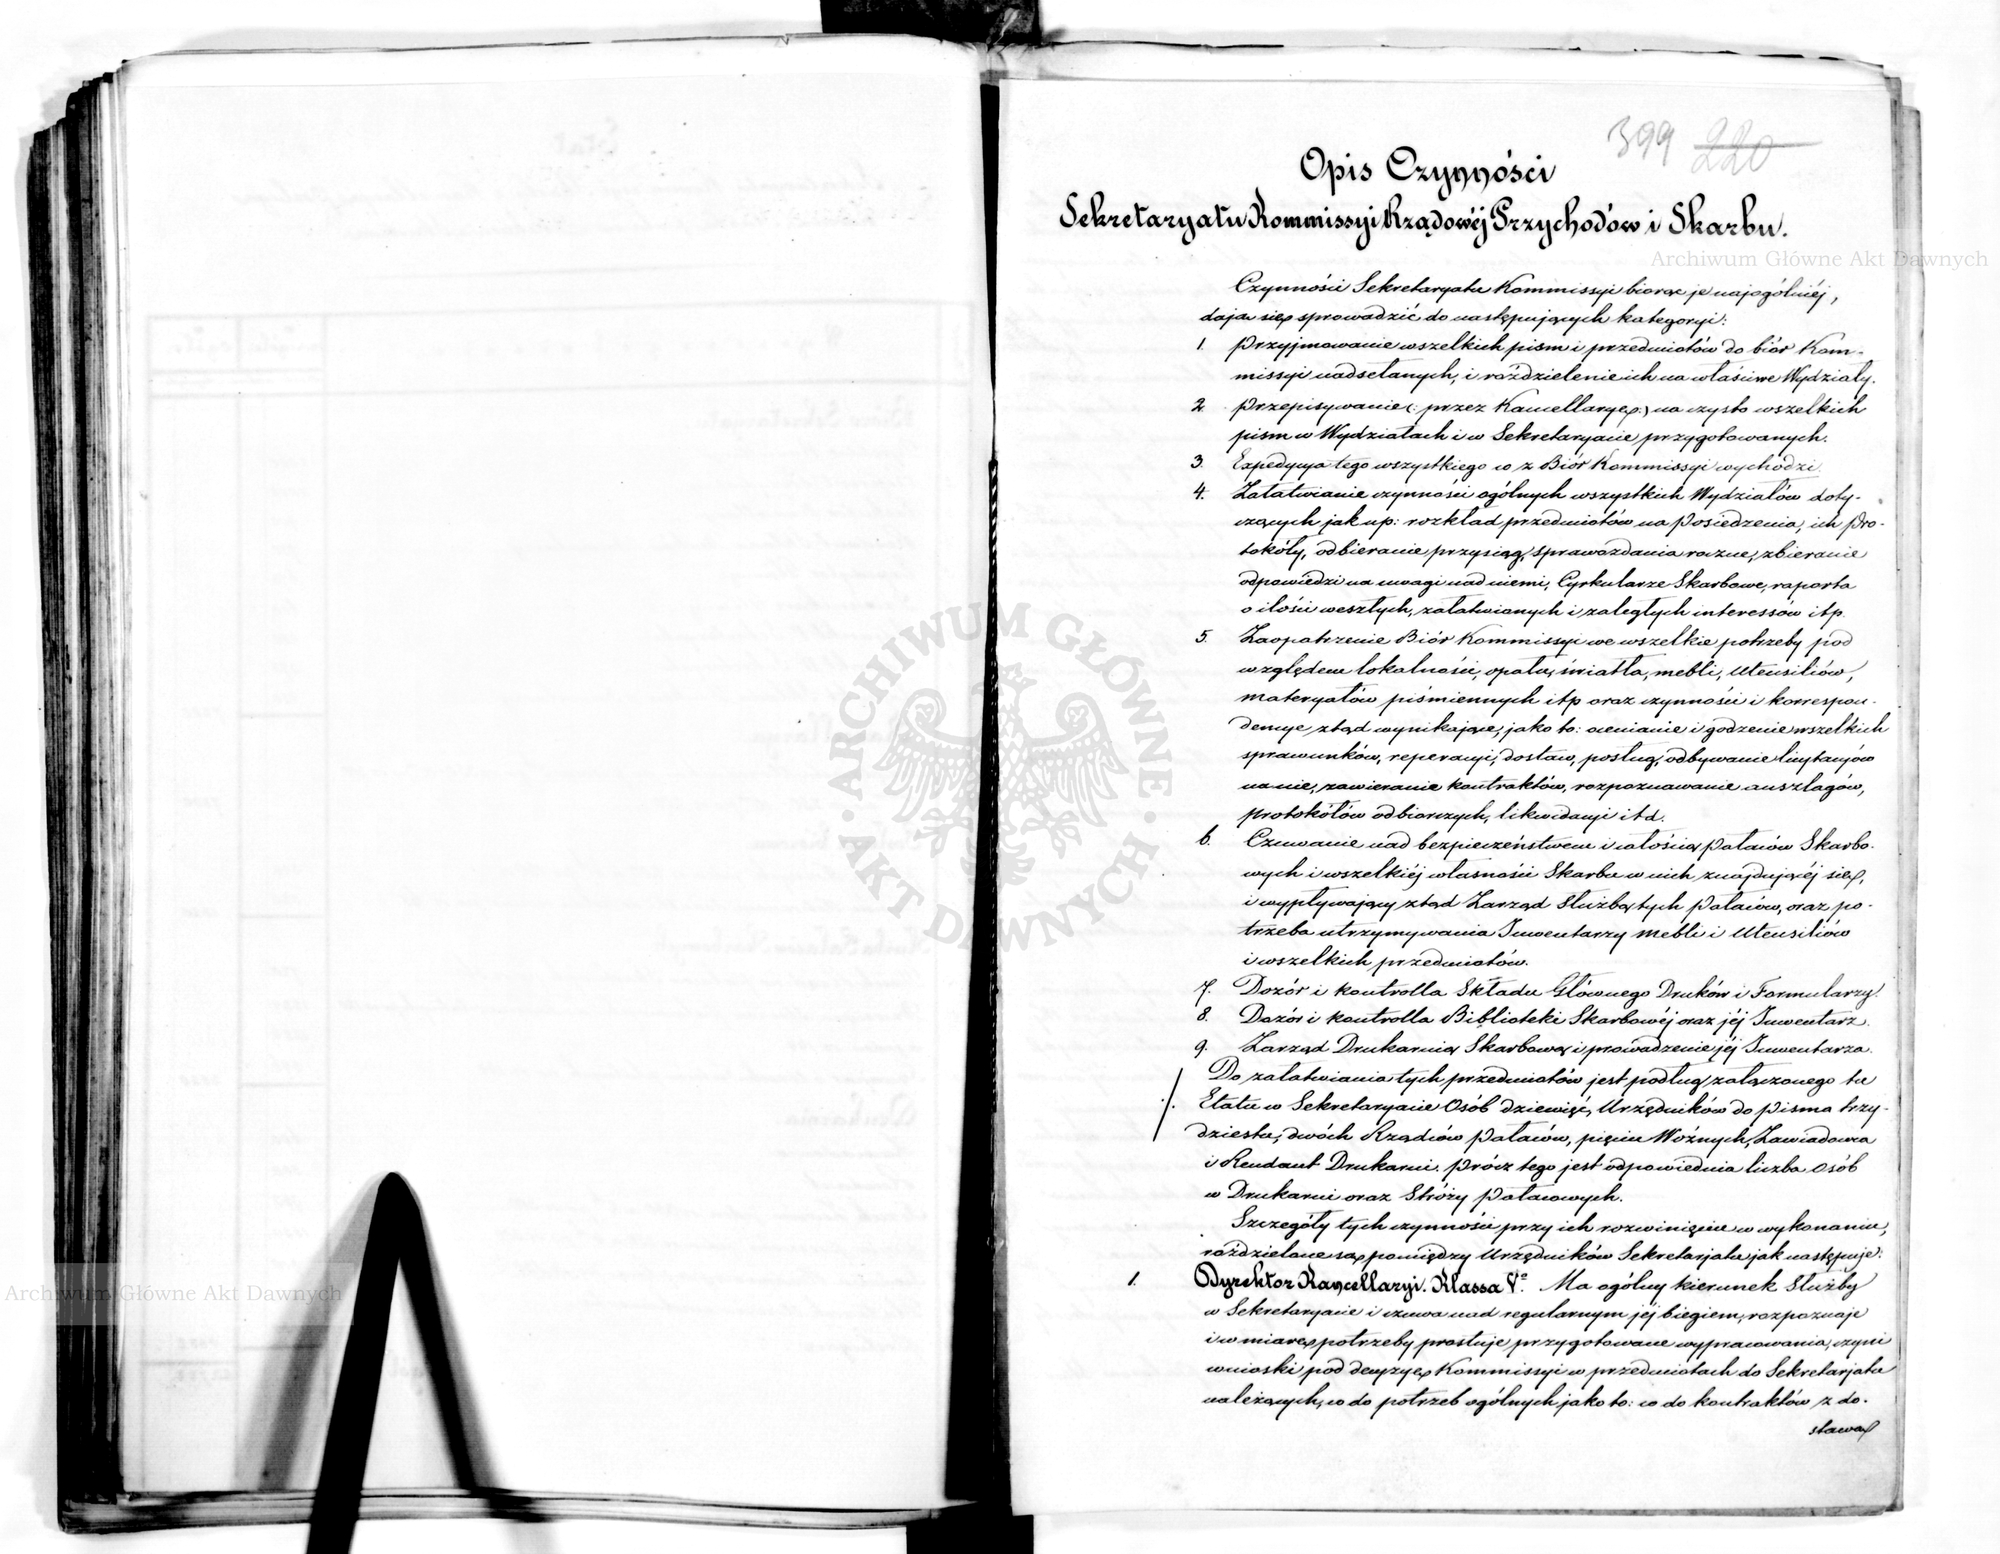 399 220
Opis Czynności
Sekretaryatu Kommissyi Rządowéj Przychodów i Skarbu.
Archiwum Główne Akt Dawnych
Czynności Sekretaryatu Kommissyi biorąc je najogólniéj,
dają się sprowadzić do następujących kategoryi:
1. Przyjmowanie wszelkich pism i przedmiotów do biór Kom-
missyi nadsełanych, i rozdzielenie ich na właściwe Wydziały.
2. Przepisywanie (: przez Kancellaryę :) na czysto wszelkich
pism w Wydziałach i w Sekretaryacie przygotowanych.
3. Expedycya tego wszystkiego co z Biór Kommissyi wychodzi.
4. Załatwianie czynności ogólnych wszystkich Wydziałów doty-
czących jak np: rozkład przedmiotów na Posiedzenia, ich Pro-
tokóły, odbieranie przysiąg, sprawozdania roczne, zbieranie
odpowiedzi na uwagi nad niemi, Cyrkularze Skarbowe, raporta
o ilości weszłych, załatwianych i zaległych interessów itp.
5. Zaopatrzenie Biór Kommissyi we wszelkie potrzeby pod
względem lokalności, opału, światła, mebli, Utensiliów,
materyałów piśmiennych itp oraz czynności i korrespon-
dencye ztąd wynikające, jako to: ocenianie i godzenie wszelkich
sprawunków, reperacyi, dostaw, posług, odbywanie licytacyów
na nie, zawieranie kontraktów, rozpoznawanie anszlagów,
protokółów odbiorczych, likwidacyi itd.
6. Czuwanie nad bezpieczeństwem i całością Pałaców Skarbo-
wych i wszelkiéj własności Skarbu w nich znajdującéj się,
i wypływający ztąd Zarząd Służbą tych Pałaców, oraz po-
trzeba utrzymywania Inwentarzy mebli i Utensiliów
i wszelkich przedmiotów.
7. Dozór i kontrolla Składu Głównego Druków i Formularzy.
8. Dozór i kontrolla Biblioteki Skarbowéj oraz jéj Inwentarz.
9. Zarząd Drukarnią Skarbową i prowadzenie jéj Inwentarza.
Do załatwiania tych przedmiotów jest podług załączonego tu
./. Etatu w Sekretaryacie Osób dziewięć, Urzędników do pisma trzy-
dziestu, dwóch Rządców Pałaców, pięciu Woźnych, Zawiadowca
i Rendant Drukarni. Prócz tego jest odpowiednia liczba Osób
w Drukarni oraz Stróży Pałacowych.
Szczegóły tych czynności przy ich rozwinięciu w wykonaniu,
rozdzielone są pomiędzy Urzędników Sekretarjatu jak następuje:
1. Dyrektor Kancellaryi. Klassa Vª. Ma ogólny kierunek Służby
Archiwum Główne Akt Dawnych
w Sekretaryacie i czuwa nad regularnym jéj biegiem, rozpoznaje
i w miarę potrzeby prostuje przygotowane wypracowania, czyni
wnioski pod decyzyę Kommissyi w przedmiotach do Sekretarjatu
należących, co do potrzeb ogólnych jako to: co do kontraktów z do-
stawcą
ARCHIWUM GŁÓWNE · AKT DAWNYCH ·